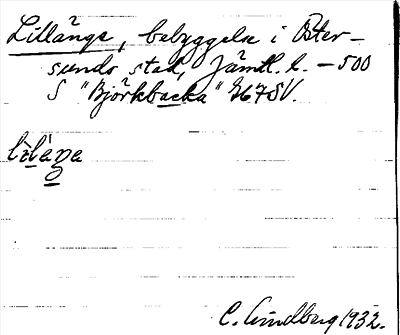 Lillänge, bebyggelse i Öster-
sunds stad, Jämtl. l. – 500
S "Björkbacka" 867SV.
C. Lindberg 1932.